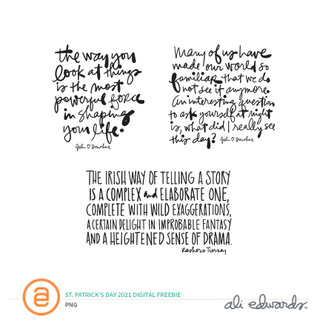 the way you
look at things
is the most
powerful force
in shaping
your life.
John O'Donohue
Many of us have
made our world so
familiar that we do
not see it anymore.
An interesting question
to ask yourself at night
is, what did I really see
this day?
John O'Donohue
THE IRISH WAY OF TELLING A STORY
IS A COMPLEX and ELABORATE ONE,
COMPLETE WITH WILD EXAGGERATIONS,
A CERTAIN DELIGHT IN IMPROBABLE FANTASY
AND A HEIGHTENED SENSE OF DRAMA.
Rashers Tierney
a
ST. PATRICK'S DAY 2021 DIGITAL FREEBIE
PNG
ali edwards